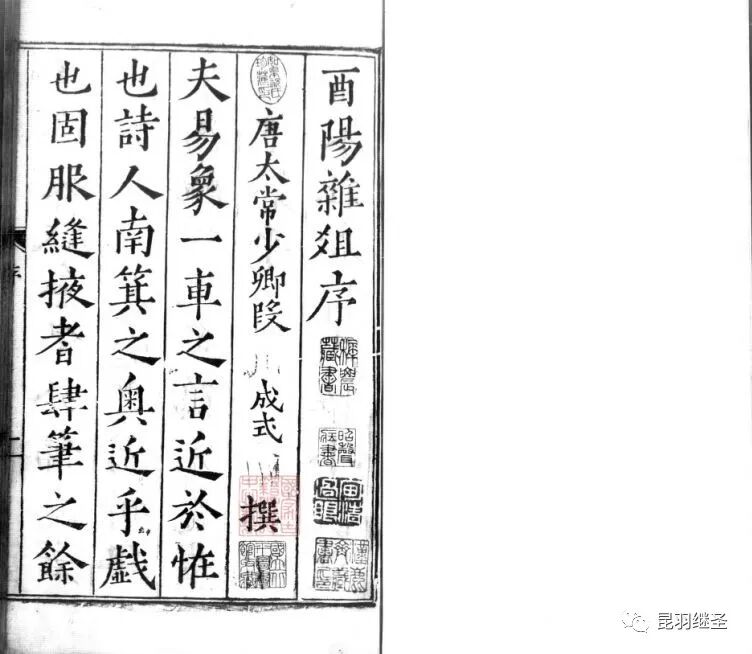 酉陽雜俎序
唐太常少卿段 成式 撰
夫易象一車之言近於恠
也詩人南箕之奧近乎戱
也固服縫掖者肆筆之餘
序
一
昆羽继圣